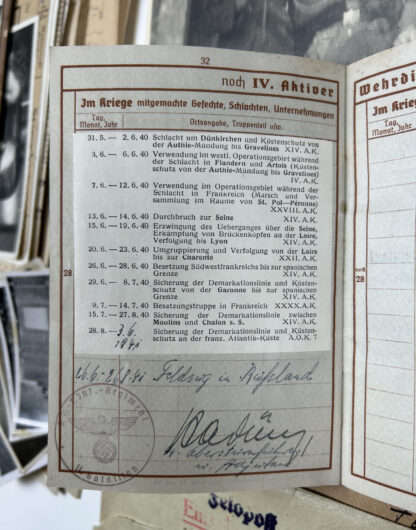 32
noch IV. Aktiver
Im Kriege mitgemachte Gefechte, Schlachten, Unternehmungen
Tag, Monat, Jahr
Ortsangabe, Truppenteil usw.
31. 5. — 2. 6. 40 Schlacht um Dünkirchen und Küstenschutz von
der Authie-Mündung bis Gravelines XIV. A.K.
3. 6. — 6. 6. 40 Verwendung im westl. Operationsgebiet während
der Schlacht in Flandern und Artois (Küsten-
schutz von der Authie-Mündung bis Gravelines)
IV. A.K.
7. 6. — 12. 6. 40 Verwendung im Operationsgebiet während der
Schlacht in Frankreich (Marsch und Ver-
sammlung im Raume von St. Pol—Péronne)
XXVIII. A.K.
13. 6. — 14. 6. 40 Durchbruch zur Seine XIV. A.K.
15. 6. — 19. 6. 40 Erzwingung des Ueberganges über die Seine,
Erkämpfung von Brückenköpfen an der Loire,
Verfolgung bis Lyon XIV. A.K.
20. 6. — 23. 6. 40 Umgruppierung und Verfolgung von der Loire
bis zur Charente XXII. A.K.
26. 6. — 28. 6. 40 Besetzung Südwestfrankreichs bis zur spanischen
Grenze XIV. A.K.
29. 6. — 8. 7. 40 Sicherung der Demarkationslinie und Küsten-
schutz von der Garonne bis zur spanischen
Grenze XIV. A.K.
9. 7. — 14. 7. 40 Besatzungstruppe in Frankreich XXXX. A.K.
15. 7. — 27. 8. 40 Sicherung der Demarkationslinie zwischen
Moulins und Chalon s. S. XIV. A.K.
28. 8. — 3. 6. 1941 Sicherung der Demarkationslinie und Küsten-
schutz an der franz. Atlantik-Küste A.O.K. 7
28
26.6.-26.8.41 Feldzug in Rußland
Obersturmführer
u. Adjutant
Wehrdi
Im Krieg
Tag,
Monat, Jahr
28
Feldpost